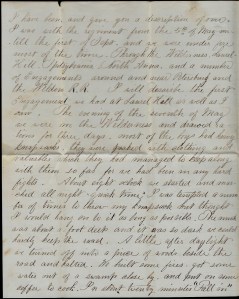 I have been, and give you a description of one.
I was with the regiment from the 5th of May un-
till the first of Sept, and we was under fire
most of the time. Through the Wilderness Laurel
Hill, Spotsylvania, North Anna, and a number
of Engagements around and near Petersburg and
the Weldon R.R. I will describe the first
Engagement, we had at Laurel Hill as well as I
can. The evening of the seventh of May
we were in the Wilderness and drawed ra-
tions for three days. most of the boys had heavy
knapsacks, they were packed with clothing and
valuables which they had managed to keep along
with them so far for we had been in any hard
fights. About eight oclock we started and mar-
ched all night (quick time). I was tempted a number
of times to throw my knapsack but thought
I would hang on to it as long as possible. The mud
was about a foot deep and it was so dark we could
hardly keep the road. A little after daylight
we turned off into a piece of woods beside the
road and halted. We built some fires got some
water out of a swamp close by, and put on some
coffee to cook. In about twenty minutes "Fall in"